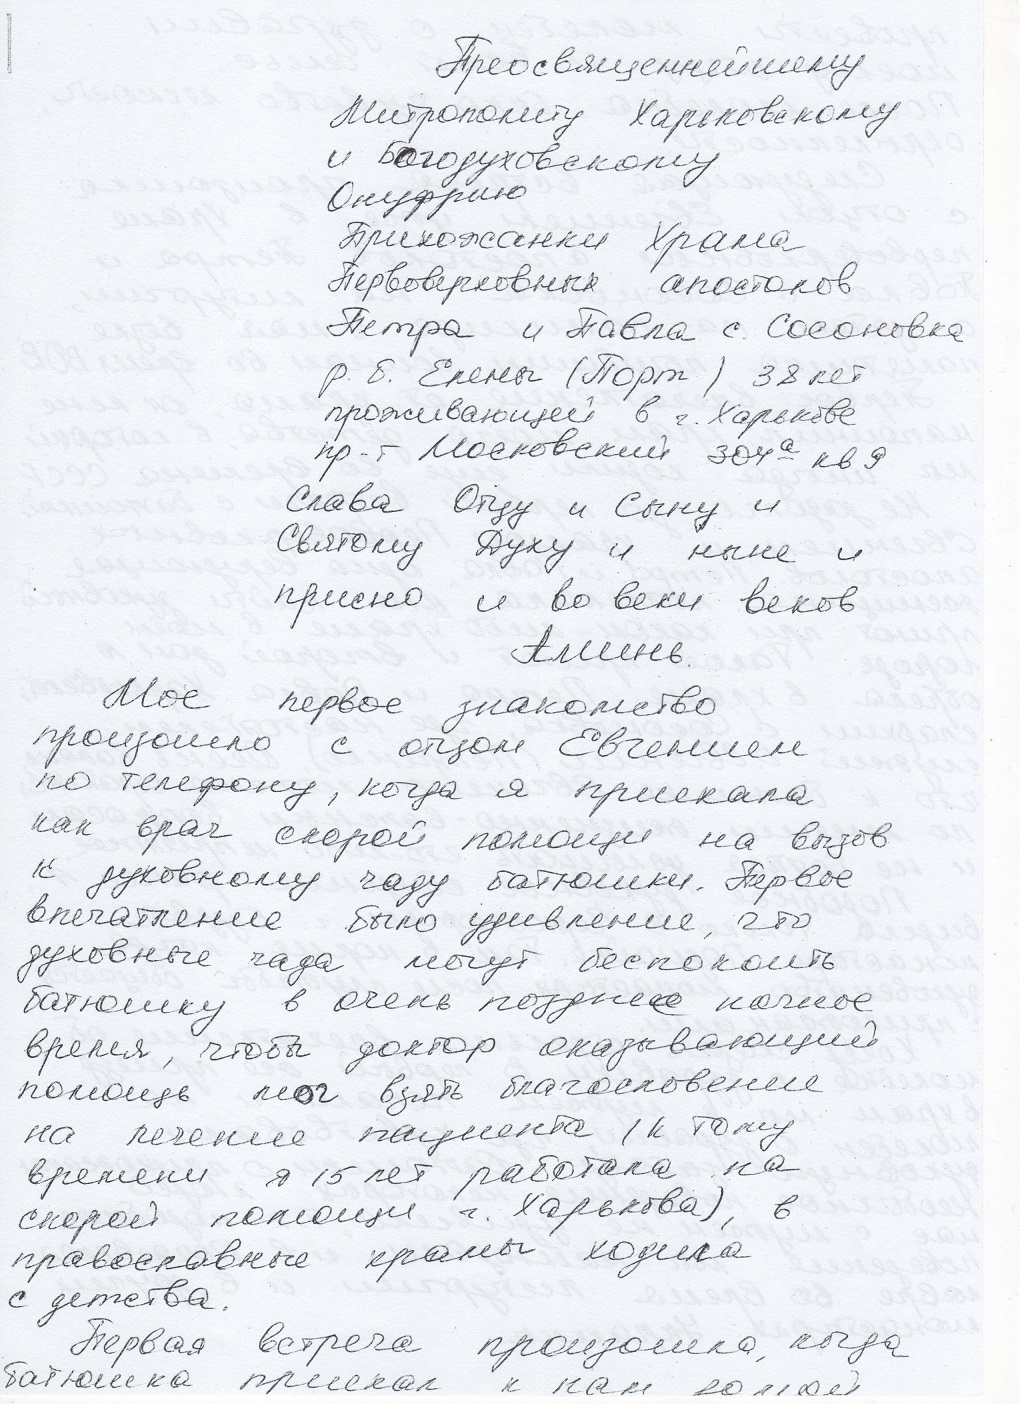 Преосвященнейшему
Митрополиту Харьковскому
и Богодуховскому
Онуфрию
Прихожанки Храма
Первоверховных апостолов
Петра и Павла с. Сосоновка
р. б. Елены (Порт) 38 лет
проживающей в г. Харькове
пр-т Московский 304а кв 9
Слава Отцу и Сыну и
Святому Духу и ныне и
присно и во веки веков
Аминь.
Мое первое знакомство
произошло с отцом Евгением
по телефону, когда я приехала
как врач скорой помощи на вызов
к духовному чаду батюшки. Первое
впечатление было удивление, что
духовные чада могут беспокоить
батюшку в очень позднее ночное
время, чтобы доктор оказывающий
помощь мог взять благословение
на лечение пациента (к тому
времени я 15 лет работала на
скорой помощи г. Харькова), в
православные храмы ходила
с детства.
Первая встреча произошла, когда
батюшка приехал к нам домой